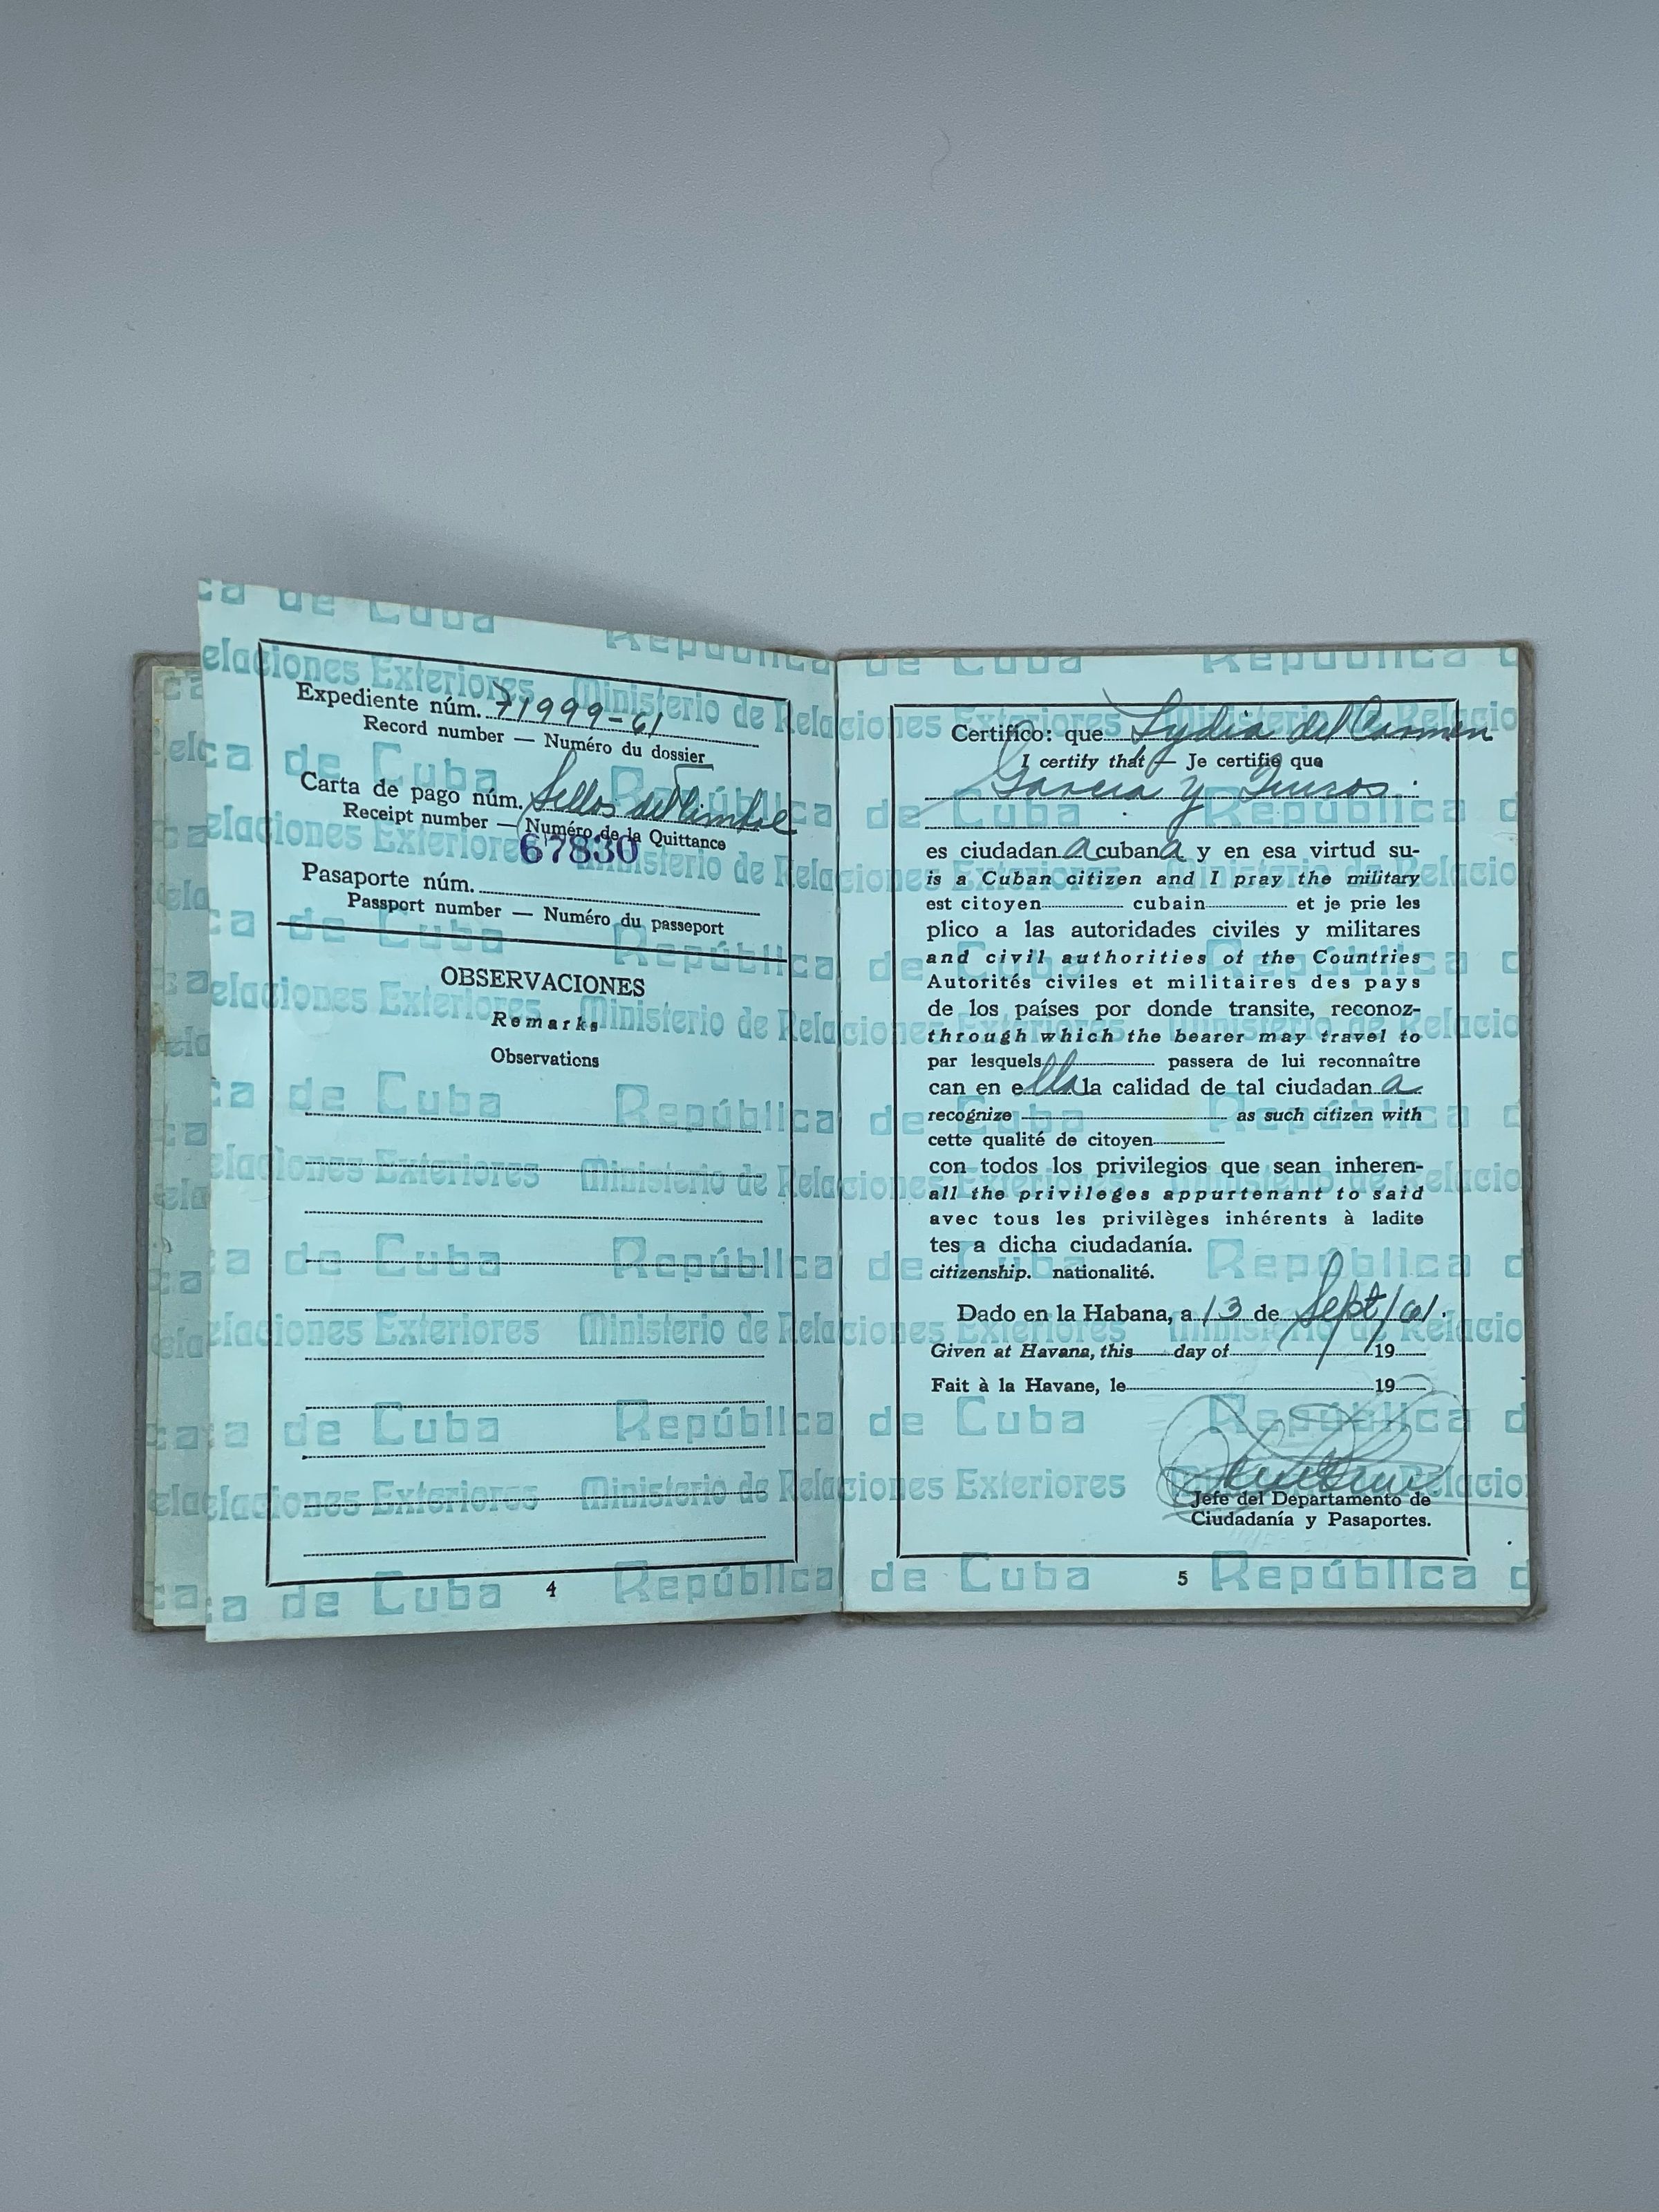 Expediente núm. 71999-61
Record number — Numéro du dossier
Carta de pago núm. Sellos del Timbre
Receipt number — Numéro de la Quittance
67830
Pasaporte núm.
Passport number — Numéro du passeport
OBSERVACIONES
Remarks
Observations
4
Certifico: que Lydia del Carmen
I certify that — Je certifie que
Garcia y
es ciudadana cubana y en esa virtud su-
is a Cuban citizen and I pray the military
est citoyen cubain et je prie les
plico a las autoridades civiles y militares
and civil authorities of the Countries
Autorités civiles et militaires des pays
de los países por donde transite, reconoz-
through which the bearer may travel to
par lesquels passera de lui reconnaître
can en ella la calidad de tal ciudadana
recognize as such citizen with
cette qualité de citoyen
con todos los privilegios que sean inheren-
all the privileges appurtenant to said
avec tous les privilèges inhérents à ladite
tes a dicha ciudadanía.
citizenship. nationalité.
Dado en la Habana, a 13 de Sept/61.
Given at Havana, this day of 19
Fait à la Havane, le 19
Jefe del Departamento de
Ciudadanía y Pasaportes.
5
República de Cuba
Ministerio de Relaciones Exteriores